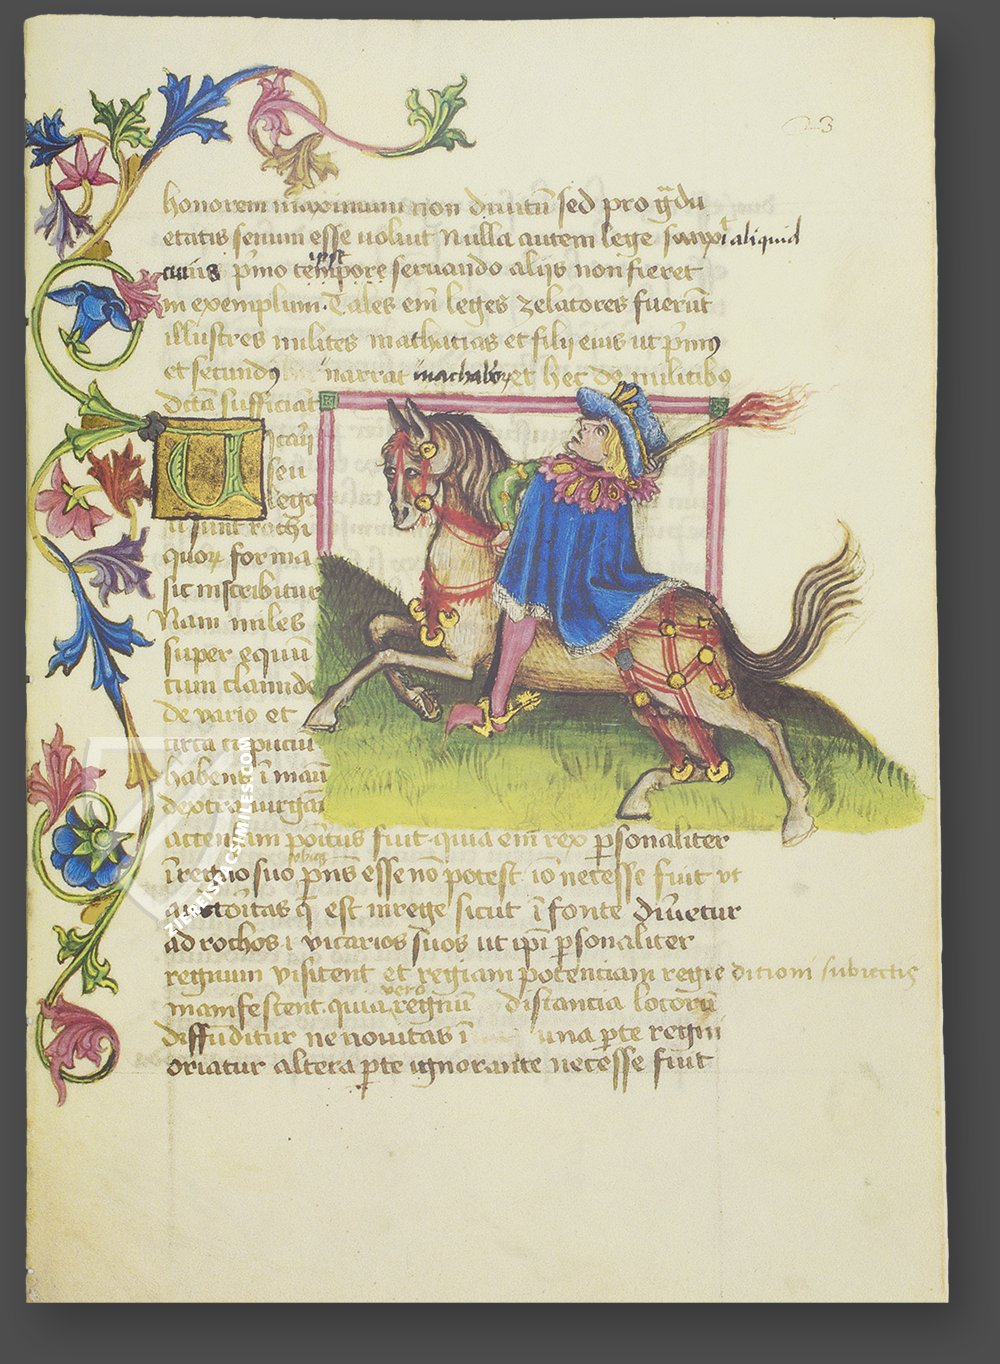 23
honorem maximum non diuitū sed pro g̃du
etatis senum esse uoluit Nulla autem lege sanxit aliquid
cuius p̄mo ipse tempore seruando alijs non fieret
in exemplum. Tales em̄ leges zelatores fuerūt
illustres milites mathatias et filij eius ut p̄mo
et secundo narrat machabeoꝝ et hec de militibꝫ
dictā sufficiat
Uicarii
seu
lega
ti sunt rochi
quoꝝ forma
sic inscribitur
Nam miles
super equū
cum clamide
de vario et
circa capuciū
habens ī manū
dextra uirgam
actensam positus fuit quia em̄ rex ꝑsonaliter
ī regno suo ubiqꝫ p̄ns esse nō potest iō necesse fuit ut
auctoritas q̄ est in rege sicut ī fonte diriuetur
ad rochos i vicarios suos ut ipi ꝑsonaliter
regnum visitent et regiam potenciam regie ditioni subiectis
manifestent. quia vero regnū distancia locorū
diffūditur ne nouitas ī una ꝑte regni
oriatur altera ꝑte ignorante necesse fuit
ZIEREIS FACSIMILES.COM